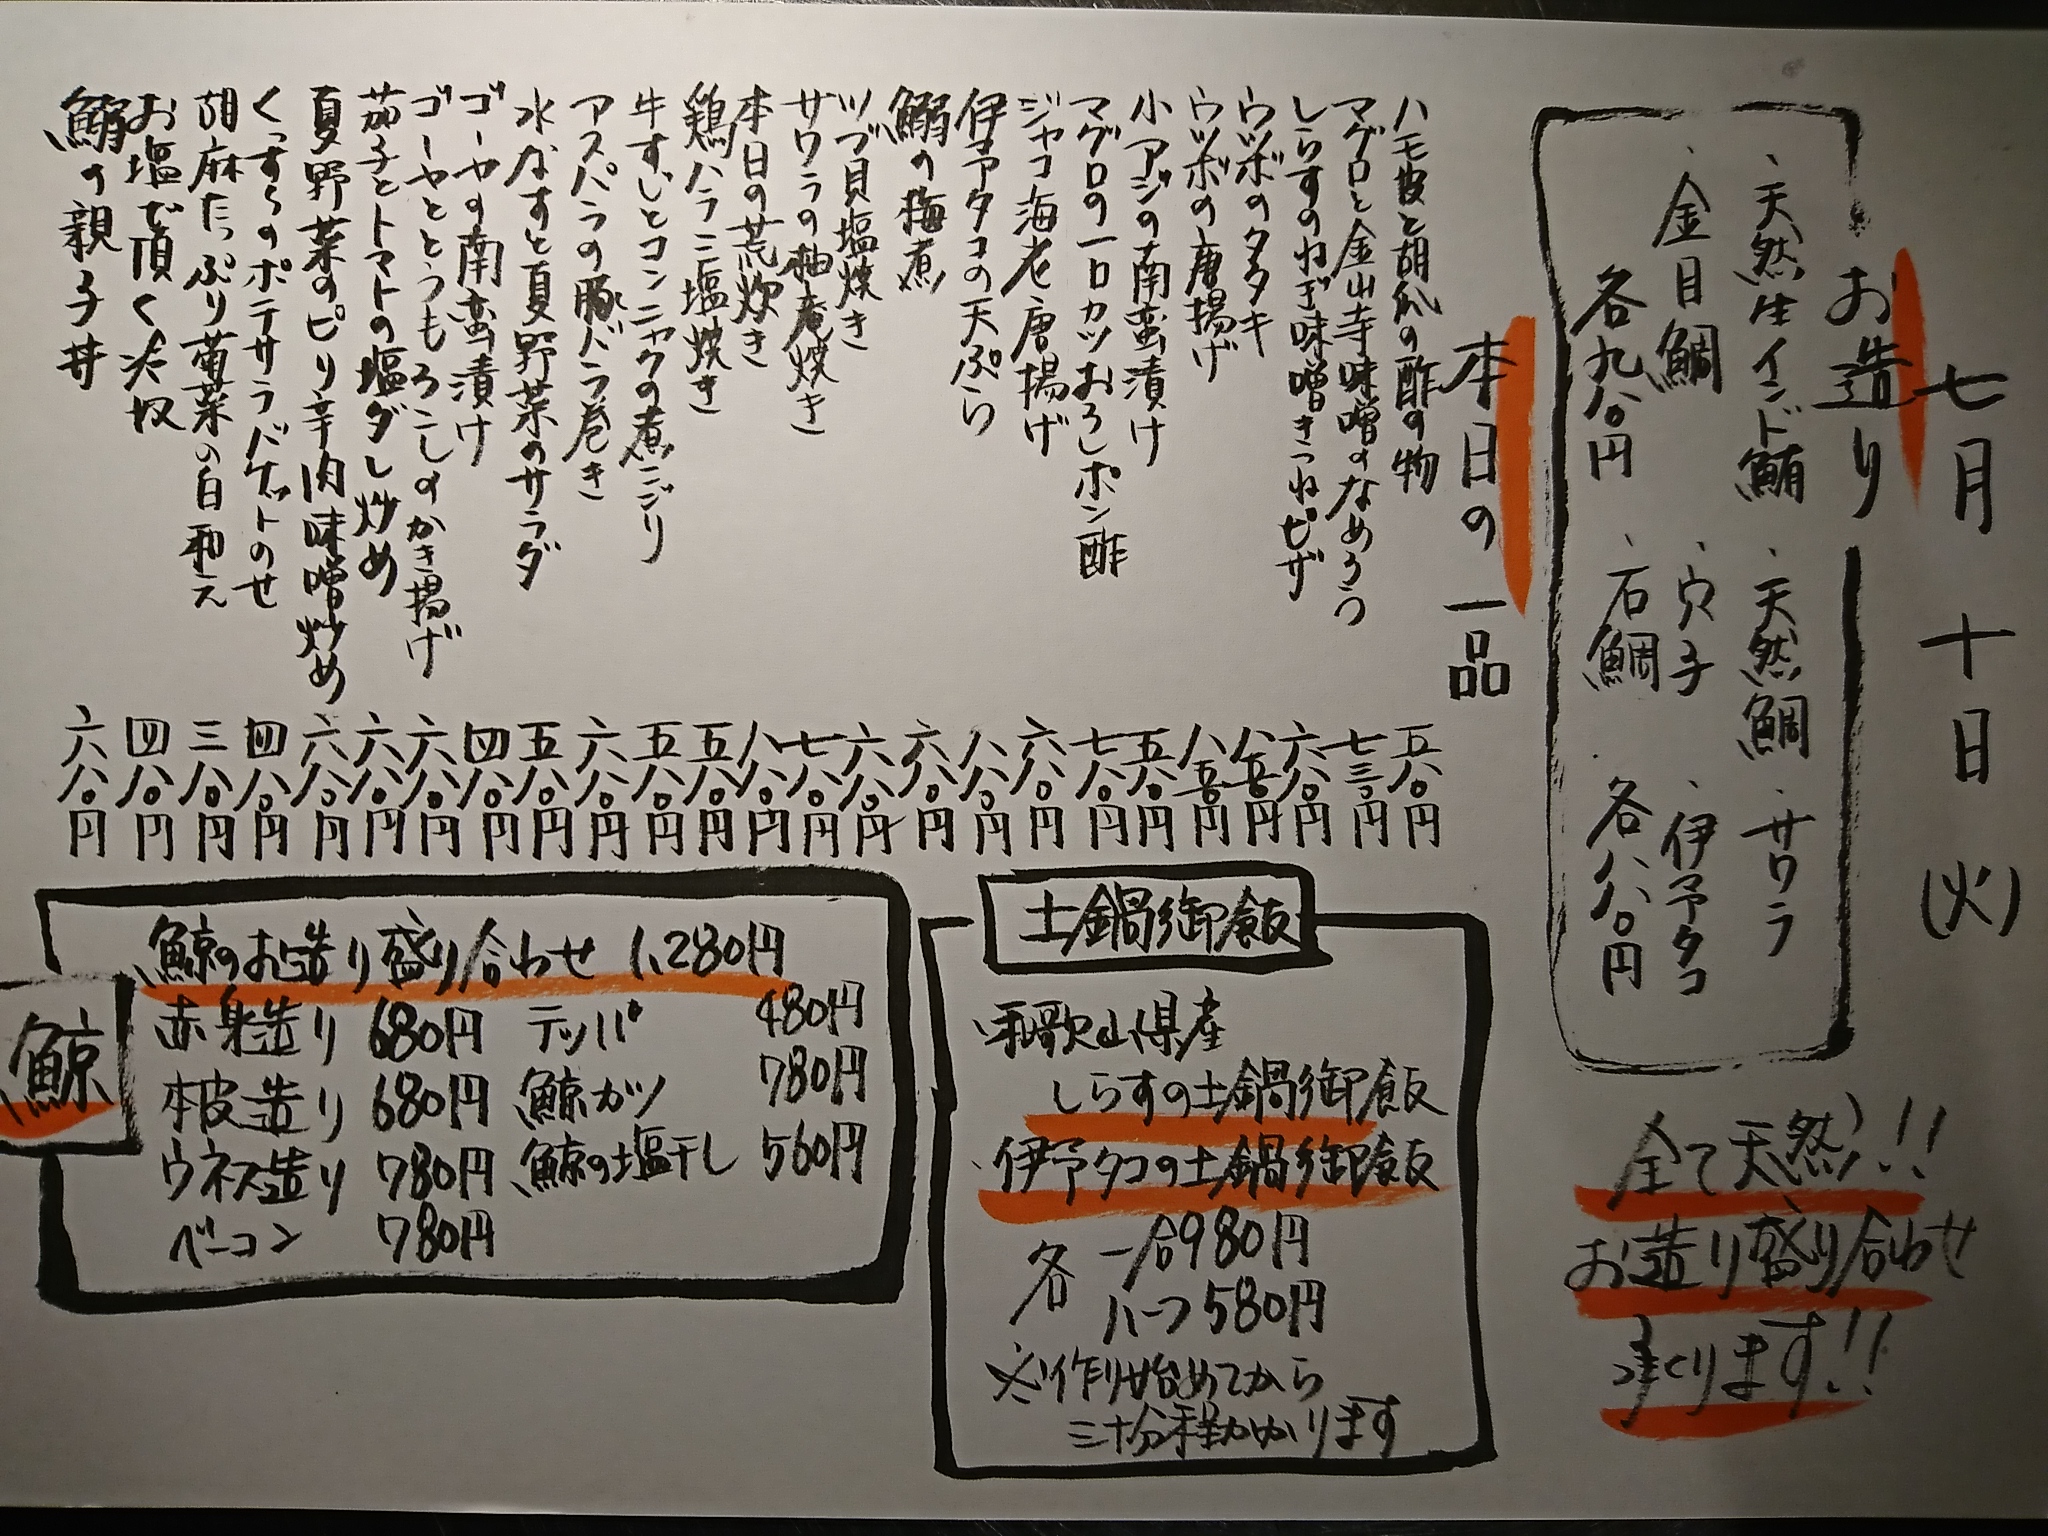 七月十日(火)
お造り
・天然生インド鮪 ・天然鯛 ・サワラ
・金目鯛 ・穴子 ・伊予タコ
各九八〇円 ・石鯛 各八八〇円
全て天然!!
お造り盛り合わせ
承ります!!
本日の一品
ハモ皮と胡瓜の酢の物 五八〇円
マグロと金山寺味噌のなめろう 七三〇円
しらすのねぎ味噌きつねピザ 六八〇円
ウツボのタタキ 八五〇円
ウツボの唐揚げ 八五〇円
小アジの南蛮漬け 五八〇円
マグロの一口カツおろしポン酢 七八〇円
ジャコ海老唐揚げ 六八〇円
伊予タコの天ぷら 八八〇円
鰯の梅煮 六八〇円
ツブ貝塩焼き 六八〇円
サワラの柚庵焼き 七八〇円
本日の荒炊き 八八〇円
鶏ハラミ塩焼き 五八〇円
牛すじとコンニャクの煮こごり 五八〇円
アスパラの豚バラ巻き 六八〇円
水なすと夏野菜のサラダ 五八〇円
ゴーヤの南蛮漬け 四八〇円
ゴーヤととうもろこしのかき揚げ 六八〇円
茄子とトマトの塩ダレ炒め 六八〇円
夏野菜のピリ辛肉味噌炒め 六八〇円
くっすらのポテサラバケットのせ 四八〇円
胡麻たっぷり菊菜の白和え 三八〇円
お塩で頂く奴 四八〇円
鰯の親子丼 六八〇円
土鍋御飯
和歌山県産
しらすの土鍋御飯
・伊予タコの土鍋御飯
各 一合980円
ハーフ580円
※作り始めてから
三十分程かかります
鯨
鯨のお造り盛り合わせ 1,280円
赤身造り 680円 テッパ 480円
本皮造り 680円 鯨カツ 780円
ウネス造り 780円 鯨の塩干し 560円
ベーコン 780円